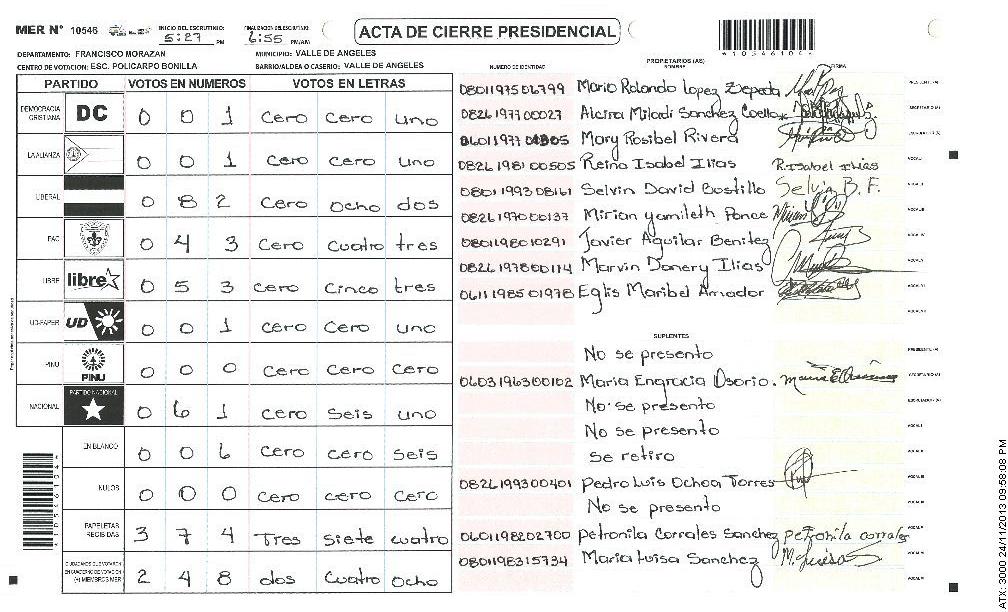 MER N° 10546
INICIO DEL ESCRUTINIO:
5:27 PM
FINALIZACION DEL ESCRUTINIO:
6:55 PM/AM
ACTA DE CIERRE PRESIDENCIAL
1 0 5 4 6 1 0 6 4
DEPARTAMENTO: FRANCISCO MORAZAN
MUNICIPIO: VALLE DE ANGELES
CENTRO DE VOTACION: ESC. POLICARPO BONILLA
BARRIO/ALDEA O CASERIO: VALLE DE ANGELES
PARTIDO VOTOS EN NUMEROS VOTOS EN LETRAS
DEMOCRACIA CRISTIANA DC 0 0 1 cero cero uno
LA ALIANZA 0 0 1 cero cero uno
LIBERAL 0 8 2 cero ocho dos
PAC 0 4 3 cero cuatro tres
LIBRE libre 0 5 3 cero cinco tres
UD-FAPER UD 0 0 1 cero cero uno
PINU PINU 0 0 0 cero cero cero
NACIONAL PARTIDO NACIONAL 0 6 1 cero seis uno
EN BLANCO 0 0 6 cero cero seis
NULOS 0 0 0 cero cero cero
PAPELETAS RECIBIDAS 3 7 4 Tres siete cuatro
CIUDADANOS QUE VOTARON EN CUADERNO DE VOTACION (+) MIEMBROS MER 2 4 8 dos cuatro ocho
NUMERO DE IDENTIDAD
PROPIETARIOS (AS)
NOMBRE
FIRMA
0801197502799 Mario Rolando Lopez Zepeda
0826197700027 Alcira Miladi Sanchez Coello
Mary Rosibel Rivera
0826198100505 Reina Isabel Ilias R. Isabel Ilias
0801199308161 Selvin David Bostillo Selvin B. F.
0826197000137 Mirian Yamileth Ponce Mirian
0801198010291 Javier Aguilar Benitez
0826197800174 Marvin Donery Ilias
0611198501978 Eglis Maribel Amador
SUPLENTES
No se presento
0603196300102 Maria Engracia Osorio.
No se presento
No se presento
se retiro
0826199300401 Pedro Luis Ochoa Torres
No se presento
0601198202700 petronila Corrales Sanchez petronila corrales
0801198315734 Maria Luisa Sanchez
ATX-3000 24/11/2013 09:58:08 PM